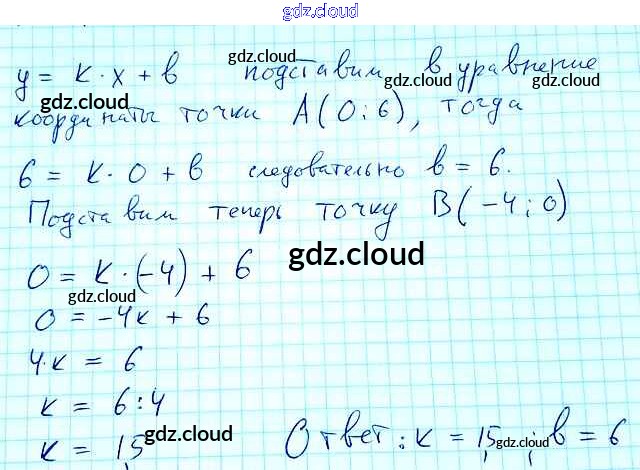 gdz.cloud
y = k · x + b подставим в уравнение
координаты точки A(0;6), тогда
6 = k · 0 + b следовательно b = 6.
Подставим теперь точку B(-4;0)
0 = k · (-4) + 6
0 = -4k + 6
4·k = 6
k = 6:4
k = 1,5 Ответ: k = 1,5; b = 6
gdz.cloud
gdz.cloud
gdz.cloud
gdz.cloud
gdz.cloud
gdz.cloud
gdz.cloud
gdz.cloud